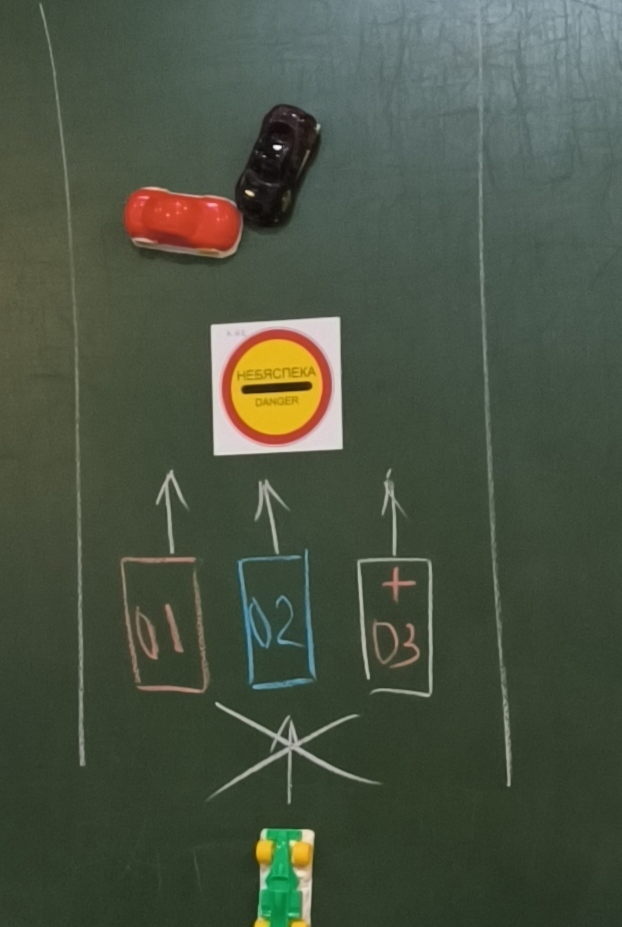 НЕБЯСПЕКА
DANGER
01 02 +
03